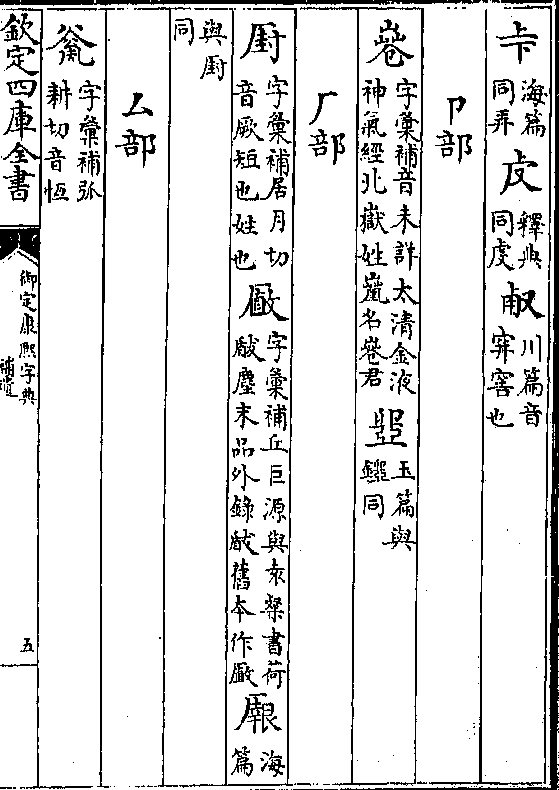 卡海篇同弄 㕛釋典同虔 㕟川篇音穽窖也
卩部
𡹬字彙補音未詳太清金液神氣經北嶽姓嵐名𡹬君 玉篇與鑷同
厂部
字彙補居月切音厥短也姓也 字彙補丘巨源與袁粲書荷 塵末品外錄舊本作 海篇
與廚同
厶部
字彙補弘耕切音恆
欽定四庫全書
御定康熙字典
補遺
五